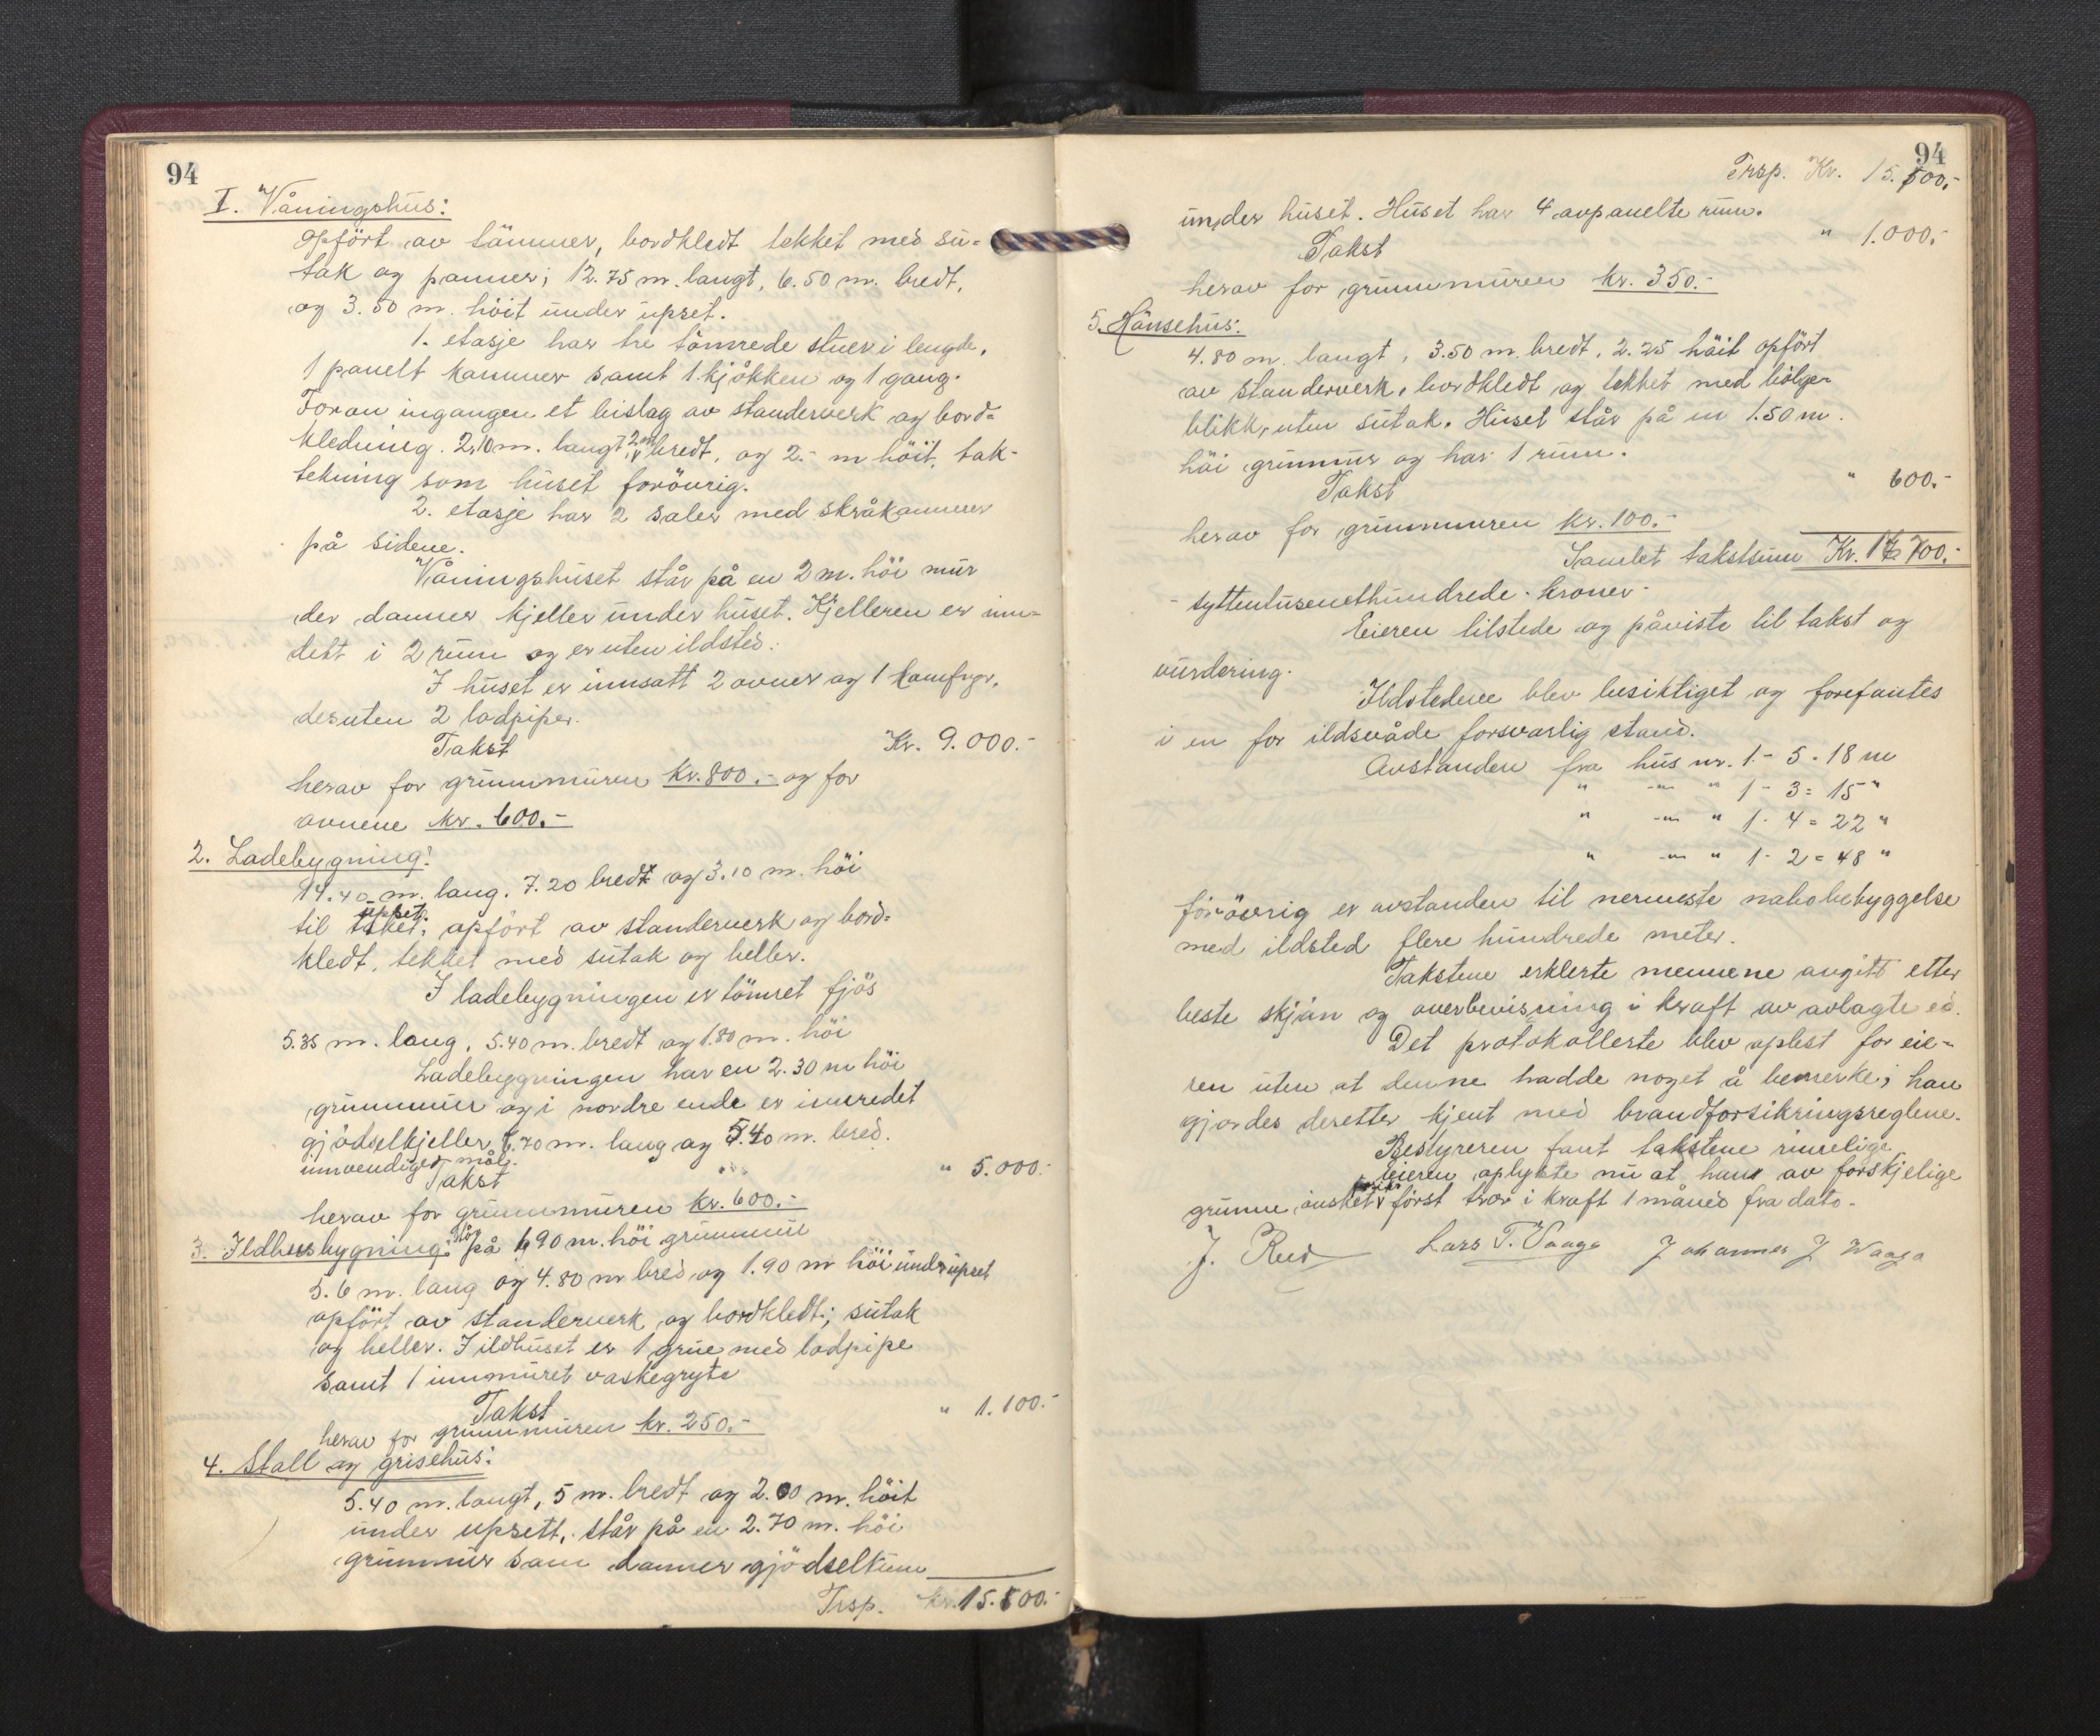 94
I. Våningshus:
Opfört av tömmer, bordkledt tekket med su-
tak og panner; 12.75 m. langt, 6.50 m. bredt,
og 3.50 m. höit under upset.
1. etasje har tre tömrede stuer i lengde,
1 panelt kammer samt 1 kjökken og 1 gang.
Foran ingangen et bislag av standerverk og bord-
kledning. 2,10 m. langt, 2 m bredt, og 2.- m höit, tak-
tekning som huset forövrig.
2. etasje har 2 saler med skråkammerer
på sidene.
Våningshuset står på en 2 m. höi mur
der danner kjeller under huset. Kjelleren er inn-
delt i 2 rum og er uten ildsted.
I huset er innsatt 2 ovner og 1 komfyr,
desuten 2 lodpiper.
Takst Kr. 9.000.-
herav for grunnmuren kr. 800.- og for
ovnene kr. 600.-
2. Ladebygning:
14.40 m. lang. 7.20 bredt og 3.10 m. höi
til upset; opfört av standerverk og bord-
kledt, tekket med sutak og heller.
I ladebygningen er tömret fjös
5.35 m. lang, 5.40 m. bredt og 1.80 m. höi
Ladebygningen har en 2.30 m höi
grunnmur og i nordre ende er innredet
gjödselkjeller, 6.70 m. lang og 5.40 m. bred.
innvendiger mål.
Takst " 5.000.-
herav for grunnmuren kr. 600.-
3. Ildhusbygning: står på 1,90 m. höi grunnmur
5.6 m. lang og 4.80 m bred og 1.90 m höi under upset
opfört av standerverk og bordkledt; sutak
og heller. I ildhuset er 1 grue med lodpipe
samt 1 innmuret vaskegryte
Takst " 1.100.-
herav for grunnmuren kr. 250.-
4. Stall og grisehus:
5.40 m. langt, 5 m. bredt og 2.00 m. höit
under upsett, står på en 2.70 m. höi
grunnmur som danner gjödselrum
Trsp. kr. 15.100.-
94
Trsp. Kr. 15.100.-
under huset. Huset har 4 avpanelte rum.
Takst " 1.000.-
herav for grunnmuren kr. 350.-
5. Hönsehus:
4.80 m. langt, 3.50 m. bredt, 2.25 höit opfört
av standerverk, bordkledt og tekket med bölge-
blikk, uten sutak. Huset står på en 1.50 m.
höi grunnmur og har 1 rum.
Takst " 600.-
herav for grunnmuren kr. 100.-
Samlet takstsum Kr. 17 700.-
- syttentusenethundrede - kroner -
Eieren tilstede og påviste til takst og
vurdering.
Ildstedene blev besiktiget og forefantes
i en for ildsvåde forsvarlig stand.
Avstanden fra hus nr. 1 - 5 = 18 m
" -"- " 1 - 3 = 15 "
" -"- " 1 - 4 = 22 "
" -"- " 1 - 2 = 48 "
forövrig er avstanden til nermeste nabobebyggelse
med ildsted flere hundrede meter.
Takstene erklerte mennene angitt etter
beste skjön og overbevisning i kraft av avlagte ed.
Det protokollerte blev oplest for eie-
ren uten at denne hadde noget å bemerke; han
gjordes deretter kjent med brandforsikringsreglene.
Bestyreren fant takstene rimelige.
Eieren oplyste nu at han av forskjelige
grunne önsket först trær i kraft 1 måned fra dato.
J. Rud Lars T. Vaage Johannes J Waage